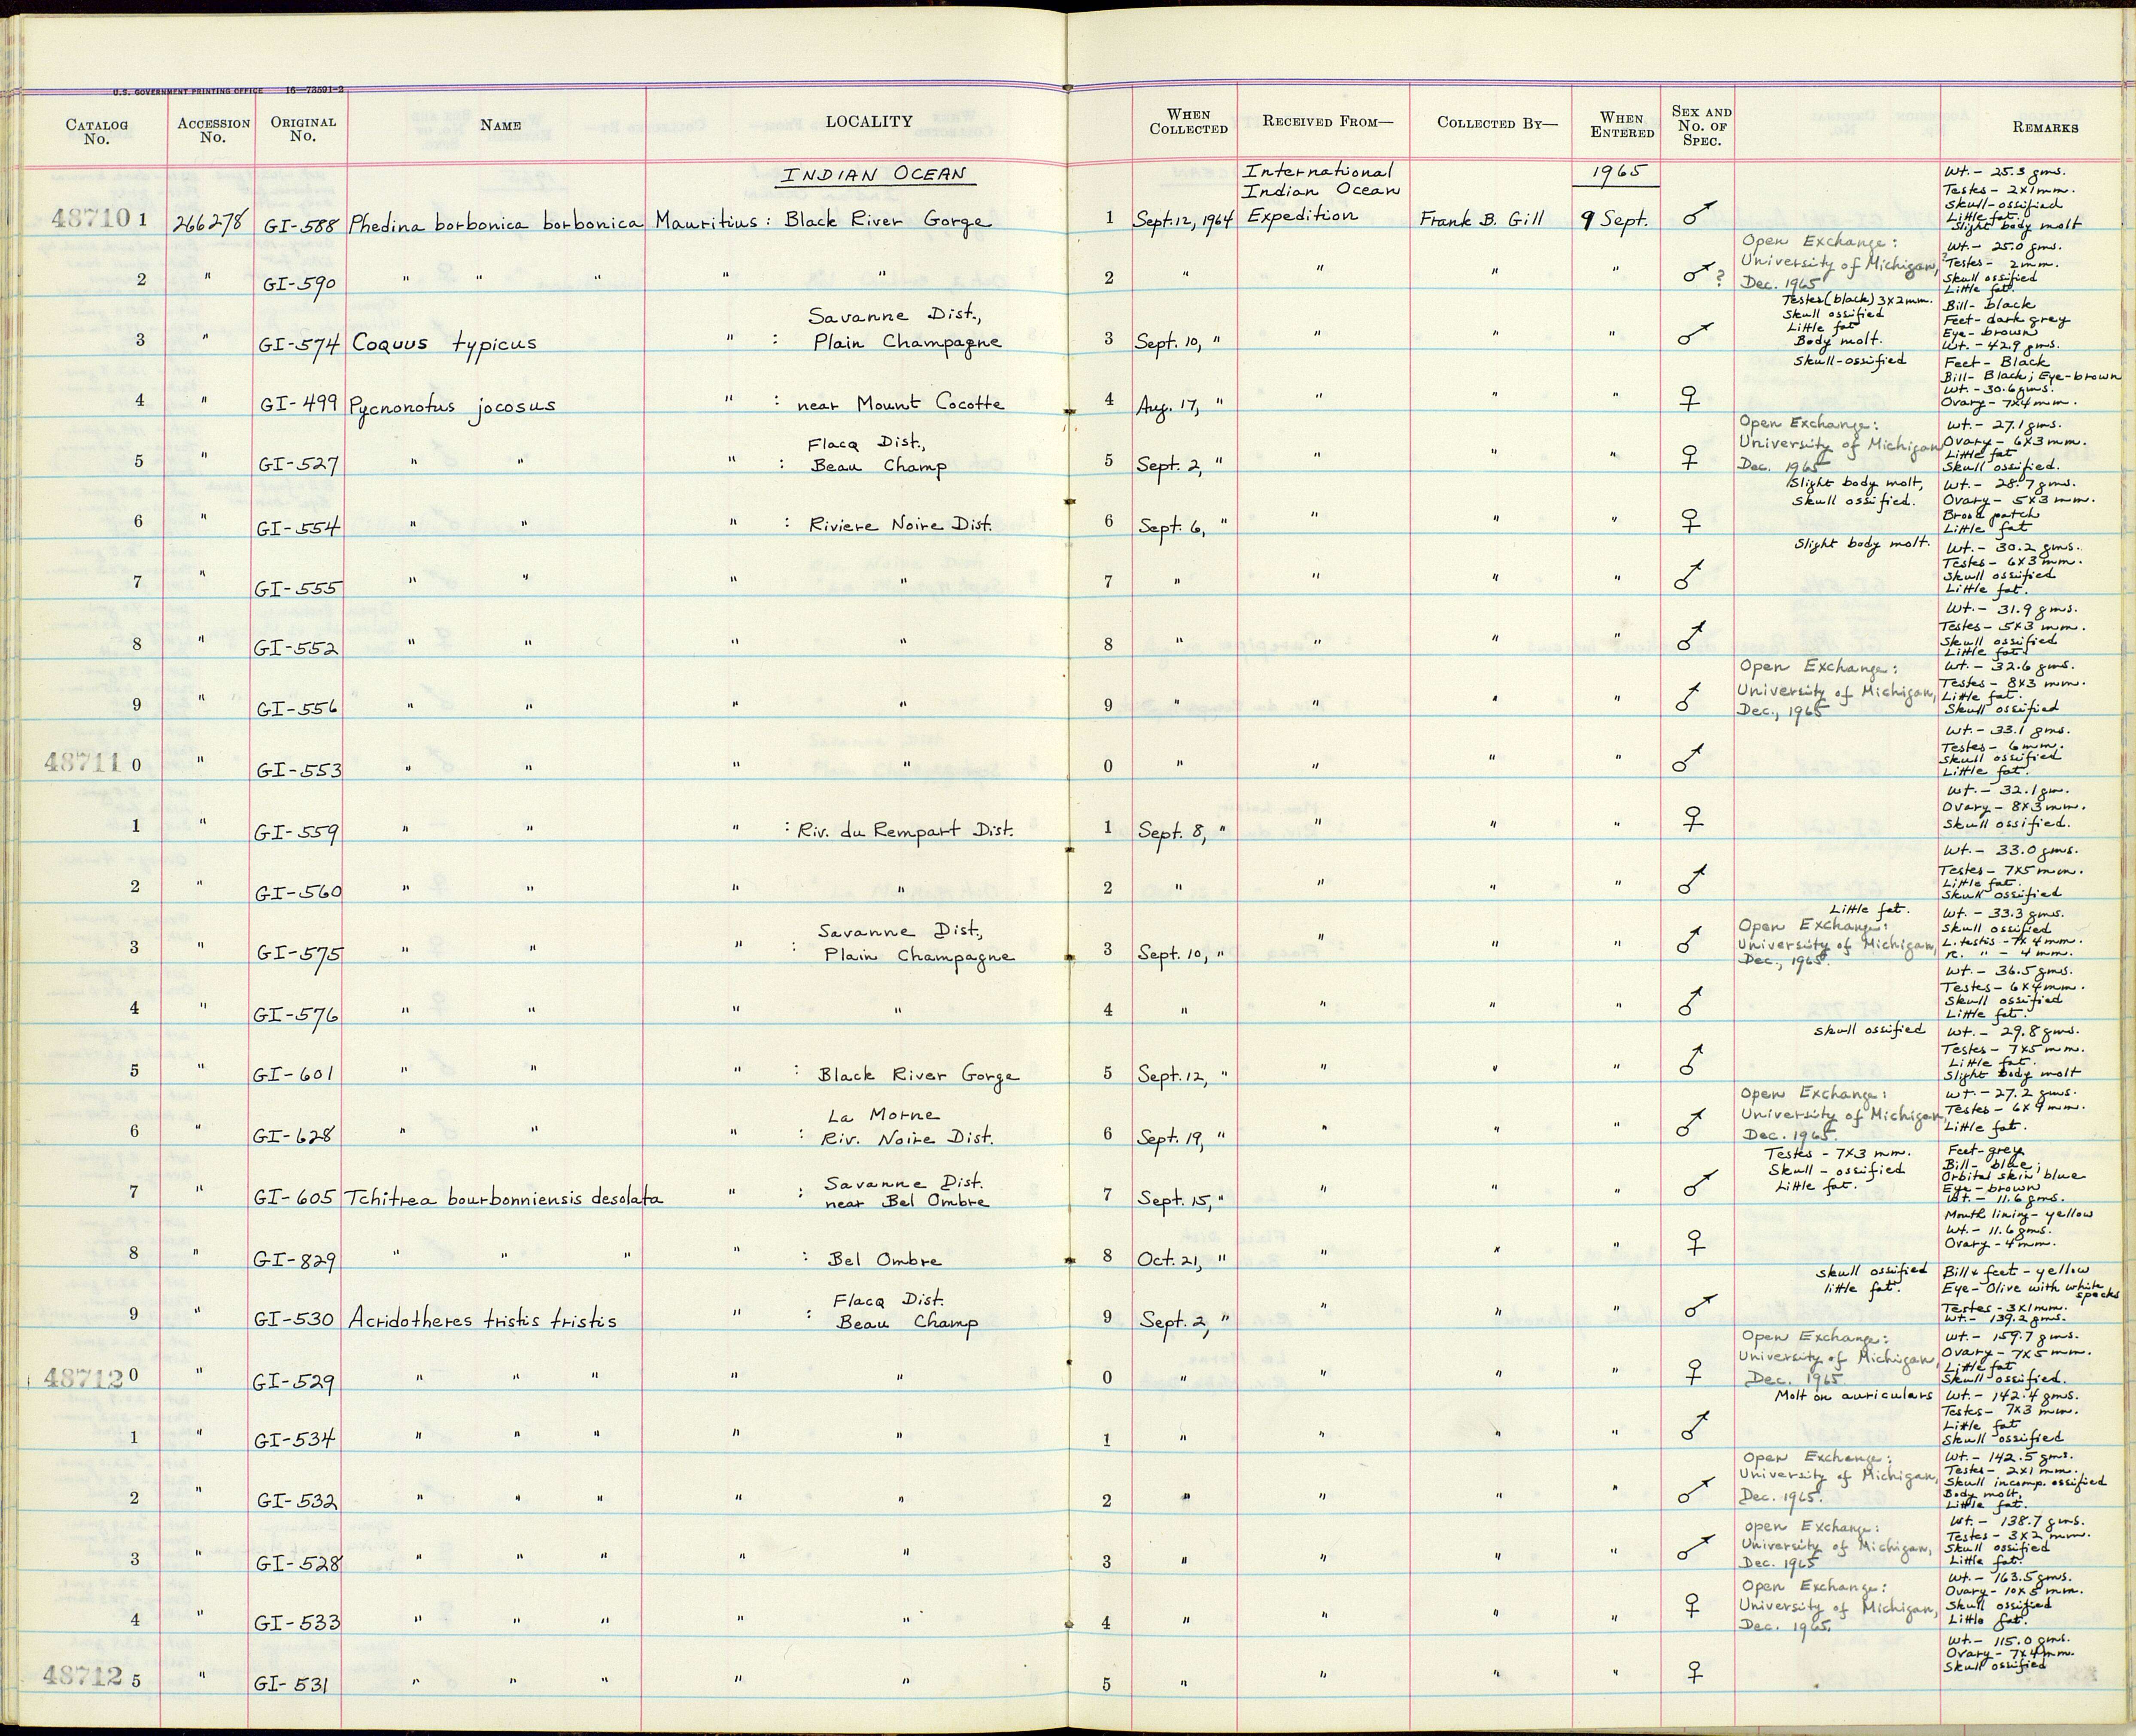 U.S. GOVERNMENT PRINTING OFFICE 16—73591-2
CATALOG No. ACCESSION No. ORIGINAL No. NAME LOCALITY WHEN COLLECTED RECEIVED FROM— COLLECTED BY— WHEN ENTERED SEX AND No. OF SPEC. REMARKS
INDIAN OCEAN International Indian Ocean 1965
48710 1 266278 GI-588 Phedina borbonica borbonica Mauritius: Black River Gorge 1 Sept. 12, 1964 Expedition Frank B. Gill 9 Sept. ♂ Wt.- 25.3 gms. Testes- 2x1mm. Skull-ossified Little fat. Slight body molt
2 " GI-590 " " " " " 2 " " " " ♂? Open Exchange: University of Michigan, Dec. 1965 Wt.- 25.0 gms. ?Testes- 2mm. Skull ossified Little fat.
3 " GI-574 Coquus typicus " : Savanne Dist., Plain Champagne 3 Sept. 10, " " " " ♂ Testes (black) 3x2mm. Skull ossified Little fat Body molt. Bill- black Feet- dark grey Eye- brown Wt.- 42.9 gms.
4 " GI-499 Pycnonotus jocosus " : near Mount Cocotte 4 Aug. 17, " " " " ♀ Skull-ossified Feet- Black Bill- Black; Eye-brown Wt.- 30.6 gms. Ovary- 7x4mm.
5 " GI-527 " " " : Flacq Dist., Beau Champ 5 Sept. 2, " " " " ♀ Open Exchange: University of Michigan Dec. 1965 Wt.- 27.1 gms. Ovary- 6x3mm. Little fat Skull ossified.
6 " GI-554 " " " : Riviere Noire Dist. 6 Sept. 6, " " " " ♀ Slight body molt, Skull ossified. Wt.- 28.7 gms. Ovary- 5x3 mm. Brood patch Little fat
7 " GI-555 " " " " 7 " " " " ♂ Slight body molt. Wt.- 30.2 gms. Testes- 6x3mm. Skull ossified Little fat.
8 " GI-552 " " " " 8 " " " " ♂ Wt.- 31.9 gms. Testes- 5x3 mm. Skull ossified Little fat.
9 " GI-556 " " " " 9 " " " " ♂ Open Exchange: University of Michigan, Dec., 1965 Wt.- 32.6 gms. Testes- 8x3 mm. Little fat. Skull ossified
48711 0 " GI-553 " " " " 0 " " " " ♂ Wt.- 33.1 gms. Testes- 6mm. Skull ossified Little fat.
1 " GI-559 " " " : Riv. du Rempart Dist. 1 Sept. 8, " " " " ♀ Wt.- 32.1 gm. Ovary- 8x3mm. Skull ossified.
2 " GI-560 " " " " 2 " " " " ♂ Wt.- 33.0 gms. Testes- 7x5mm. Little fat. Skull ossified
3 " GI-575 " " " : Savanne Dist., Plain Champagne 3 Sept. 10, " " " " ♂ Little fat. Open Exchange: University of Michigan, Dec., 1965. Wt.- 33.3 gms. Skull ossified L. testis- 7x4mm. R. " - 4mm.
4 " GI-576 " " " " 4 " " " " ♂ Wt.- 36.5 gms. Testes- 6x4mm. Skull ossified Little fat.
5 " GI-601 " " " : Black River Gorge 5 Sept. 12, " " " " ♂ Skull ossified Wt.- 29.8 gms. Testes- 7x5mm. Little fat. Slight body molt
6 " GI-628 " " " : La Morne Riv. Noire Dist. 6 Sept. 19, " " " " ♂ Open Exchange: University of Michigan Dec. 1965. Wt.- 27.2 gms. Testes- 6x9mm. Little fat.
7 " GI-605 Tchitrea bourbonniensis desolata " : Savanne Dist. near Bel Ombre 7 Sept. 15, " " " " ♂ Testes- 7x3 mm. Skull- ossified Little fat. Feet-grey Bill- blue; Orbital skin blue Eye- brown Wt.- 11.6 gms.
8 " GI-829 " " " " : Bel Ombre 8 Oct. 21, " " " " ♀ Mouth lining- yellow Wt.- 11.6 gms. Ovary- 4mm.
9 " GI-530 Acridotheres tristis tristis " : Flacq Dist. Beau Champ 9 Sept. 2, " " " " ♂ Skull ossified little fat. Bill & feet- yellow Eye- Olive with white specks Testes- 3x1mm. Wt.- 139.2 gms.
48712 0 " GI-529 " " " " " 0 " " " " ♀ Open Exchange: University of Michigan, Dec. 1965 Wt.- 159.7 gms. Ovary- 7x5mm. Little fat Skull ossified.
1 " GI-534 " " " " " 1 " " " " ♂ Molt on auriculars Wt.- 142.4 gms. Testes- 7x3 mm. Little fat Skull ossified
2 " GI-532 " " " " " 2 " " " " ♂ Open Exchange: University of Michigan, Dec. 1965. Wt.- 142.5 gms. Testes- 2x1mm. Skull incomp. ossified Body molt. Little fat.
3 " GI-528 " " " " " 3 " " " " ♂ Open Exchange: University of Michigan, Dec. 1965 Wt.- 138.7 gms. Testes- 3x2 mm. Skull ossified Little fat.
4 " GI-533 " " " " " 4 " " " " ♀ Open Exchange: University of Michigan, Dec. 1965. Wt.- 163.5 gms. Ovary- 10x5 mm. Skull ossified Little fat.
48712 5 " GI-531 " " " " " 5 " " " " ♀ Wt.- 115.0 gms. Ovary- 7x4mm. Skull ossified